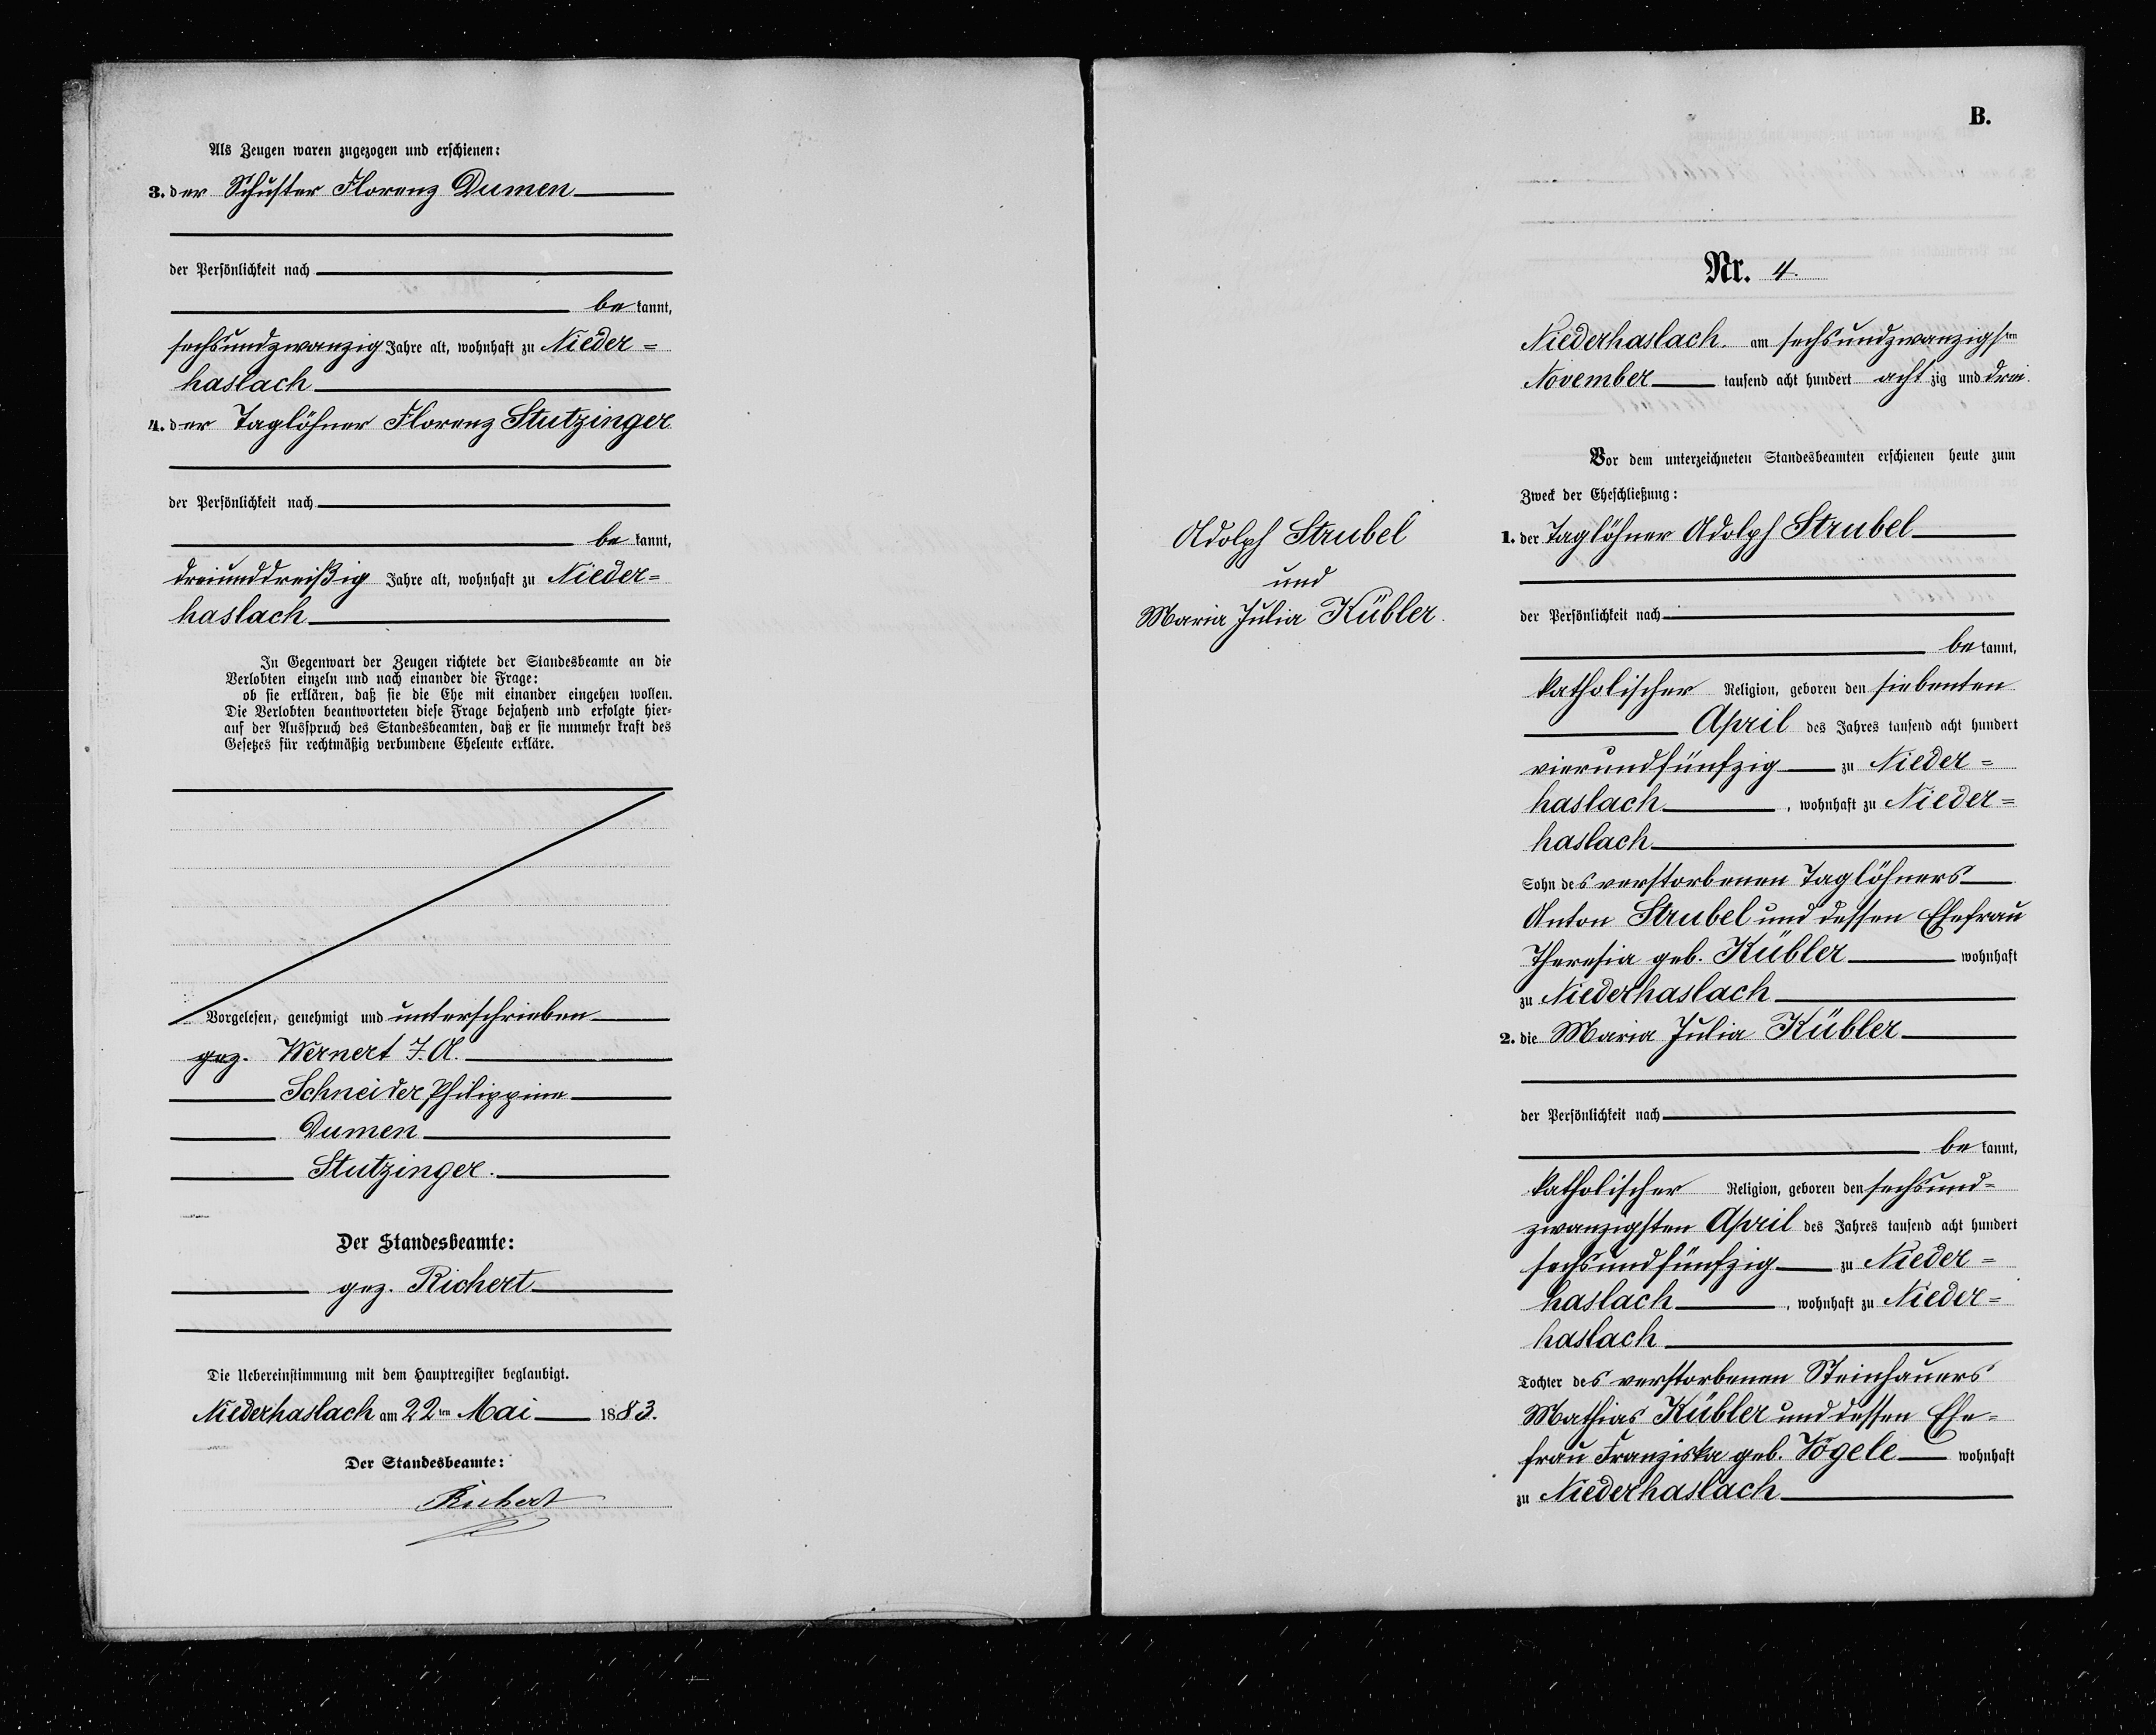 Als Zeugen waren zugezogen und erschienen:
3. der Schuster Florenz Dumen
der Persönlichkeit nach
be kannt,
sechsundzwanzig Jahre alt, wohnhaft zu Nieder=
haslach
4. der Taglöhner Florenz Stutzinger
der Persönlichkeit nach
be kannt,
dreiunddreißig Jahre alt, wohnhaft zu Nieder=
haslach
In Gegenwart der Zeugen richtete der Standesbeamte an die
Verlobten einzeln und nach einander die Frage:
ob sie erklären, daß sie die Ehe mit einander eingehen wollen.
Die Verlobten beantworteten diese Frage bejahend und erfolgte hier-
auf der Ausspruch des Standesbeamten, daß er sie nunmehr kraft des
Gesetzes für rechtmäßig verbundene Eheleute erkläre.
Vorgelesen, genehmigt und unterschrieben
gez. Wernert J. A.
Schneider Philippine
Dumen
Stutzinger.
Der Standesbeamte:
gez. Richert
Die Uebereinstimmung mit dem Hauptregister beglaubigt.
Niederhaslach am 22ten Mai 1883.
Der Standesbeamte:
Richert
B.
Nr. 4.
Niederhaslach. am sechsundzwanzigsten
November tausend acht hundert acht zig und drei.
Vor dem unterzeichneten Standesbeamten erschienen heute zum
Zweck der Eheschließung:
Adolph Strubel
und
Maria Julia Kübler.
1. der Taglöhner Adolph Strubel
der Persönlichkeit nach
be kannt,
katholischer Religion, geboren den siebenten
April des Jahres tausend acht hundert
vierundfünfzig zu Nieder=
haslach, wohnhaft zu Nieder=
haslach
Sohn des verstorbenen Taglöhners
Anton Strubel und dessen Ehefrau
Theresia geb. Kübler wohnhaft
zu Niederhaslach
2. die Maria Julia Kübler
der Persönlichkeit nach
be kannt,
katholischer Religion, geboren den sechsund=
zwanzigsten April des Jahres tausend acht hundert
sechsundfünfzig zu Nieder=
haslach, wohnhaft zu Nieder=
haslach
Tochter des verstorbenen Steinhauers
Mathias Kübler und dessen Ehe=
frau Franziska geb. Vögele wohnhaft
zu Niederhaslach